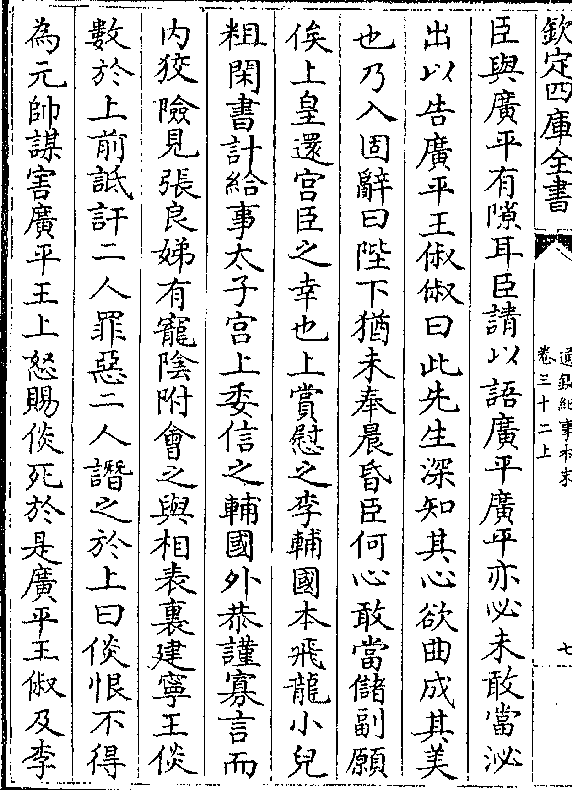 欽定四庫全書
通鑑紀事本末
卷三十二上
七
臣與廣平有隙耳臣請以語廣平廣平亦必未敢當泌
出以告廣平王俶俶曰此先生深知其心欲曲成其美
也乃入固辭曰陛下猶未奉晨昏臣何心敢當儲副願
俟上皇還宮臣之幸也上賞慰之李輔國本飛龍小兒
粗閑書計給事太子宮上委信之輔國外恭謹寡言而
内狡險見張良娣有寵陰附會之與相表裏建寧王倓
數於上前詆訐二人罪惡二人譖之於上曰倓恨不得
為元帥謀害廣平王上怒賜倓死於是廣平王俶及李